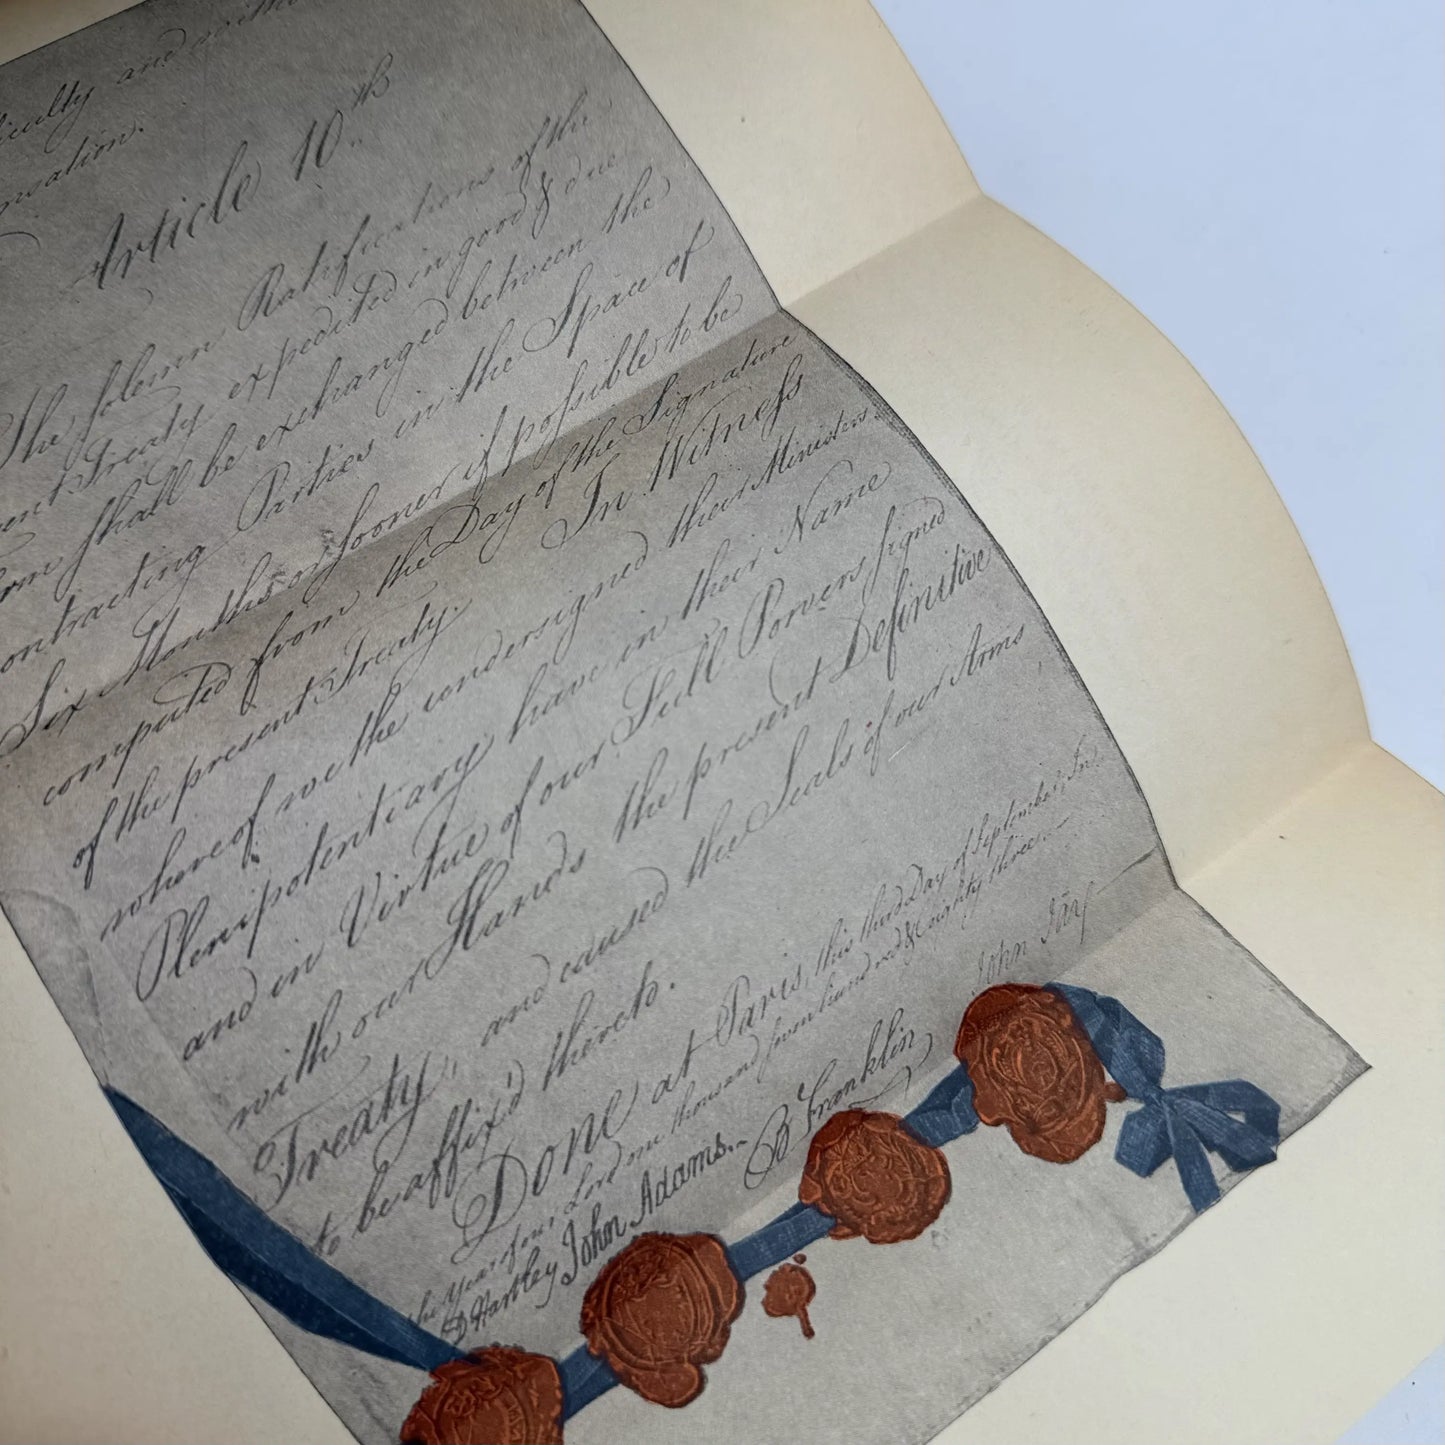 and
Article 10.th
The solemn Ratifications of the
Treaty expedited in good & due
shall be exchanged between the
Contracting Parties in the Space of
Six Months or sooner if possible to be
computed from the Day of the Signature
of the present Treaty. In Witness
whereof we the undersigned their Ministers
Plenipotentiary have in their Name
and in Virtue of our Full Powers signed
with our Hands the present Definitive
Treaty, and caused the Seals of our Arms
to be affix'd thereto.
Done at Paris, this third Day of September, In
the Year of our Lord one thousand seven hundred & eighty three.
D Hartley John Adams. B Franklin John Jay